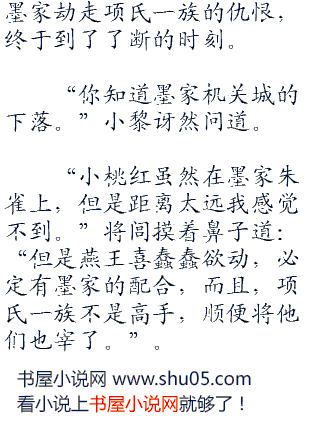 墨家劫走项氏一族的仇恨，
终于到了了断的时刻。
“你知道墨家机关城的
下落。”小黎讶然问道。
“小桃红虽然在墨家朱
雀上，但是距离太远我感觉
不到。”将闾摸着鼻子道：
“但是燕王喜蠢蠢欲动，必
定有墨家的配合，而且，项
氏一族不是高手，顺便将他
们也宰了。”。
书屋小说网 www.shu05.com
看小说上书屋小说网就够了！